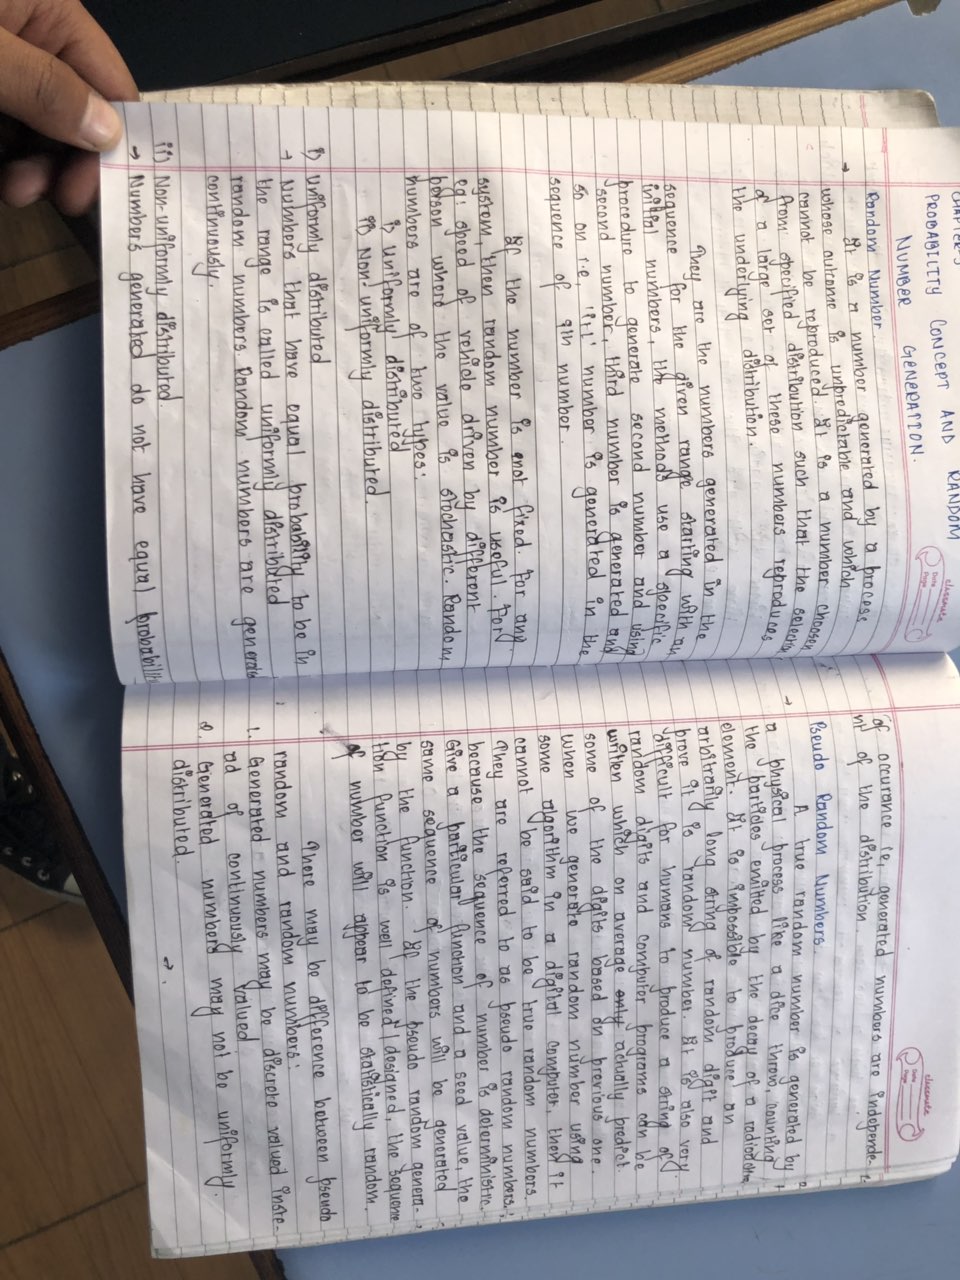 CHAPTER 5
PROBABILITY CONCEPT AND RANDOM
NUMBER GENERATION.
classmate
Date
Page
→ Random Number.
It is a number generated by a process
whose outcome is unpredictable and which
cannot be reproduced. It is a number choosen
from specified distribution such that the selectio
of a large set of these numbers reproduces
the underlying distribution.
They are the numbers generated in the
sequence for the given range starting with an
initial numbers, the methods use a specific
procedure to generate second number and using
second number, third number is generated and
so on i.e, 'i+1' number is generated in the
sequence of ith number.
If the number is not fixed. for any
system, then random number is useful. For
eg: speed of vehicle driven by different
person where the value is stochastic. Random
numbers are of two types:
i) uniformly distributed
ii) Non-uniformly distributed.
i) uniformly distributed
→ Numbers that have equal probability to be in
the range is called uniformly distributed
random numbers. Random numbers are genera
continuously.
ii) Non-uniformly distributed.
→ Numbers generated do not have equal probability
classmate
Date
Page
of occurance i.e, generated numbers are independe-
nt of the distribution.
Pseudo Random Numbers.
→ A true random number is generated by
a physical process like a dice throw, counting
the particles emitted by the decay of a radioactive
element. It is impossible to produce an
arbitrarily long string of random digit and
prove it is random number. It is also very
difficult for humans to produce a string of
random digits and computer programs can be
written which on average actually predict
some of the digits based on previous one.
When we generate random number using
some algorithm in a digital computer, then it
cannot be said to be true random numbers.
They are referred to as pseudo random numbers,
because the sequence of number is deterministic.
Give a particular function and a seed value, the
same sequence of numbers will be generated
by the function. If the pseudo random genera-
tion function is well defined/designed, the sequence
of number will appear to be statistically random.
There may be difference between pseudo
random and random numbers:
1. Generated numbers may be discrete valued inste-
ad of continuously valued.
2. Generated numbers may not be uniformly
distributed.
→